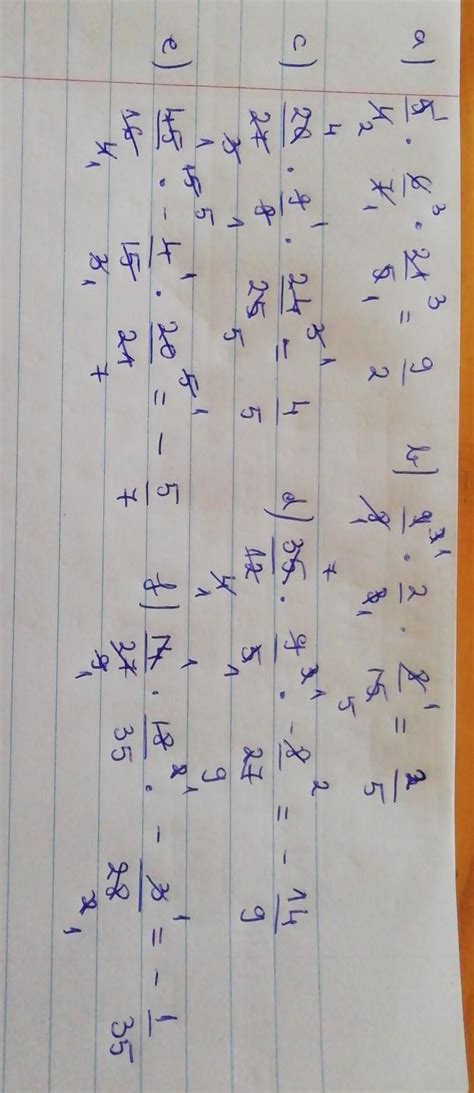 a) 5/4 · 6/7 · 21/5 = 9/2 b) 9/8 · 2/3 · 8/15 = 2/5
c) 20/27 · 9/8 · 24/25 = 4/5 d) 35/12 · 9/5 · -8/27 = - 14/9
e) 45/16 · - 4/15 · 20/21 = - 5/7 f) 14/27 · 18/35 · - 3/28 = - 1/35